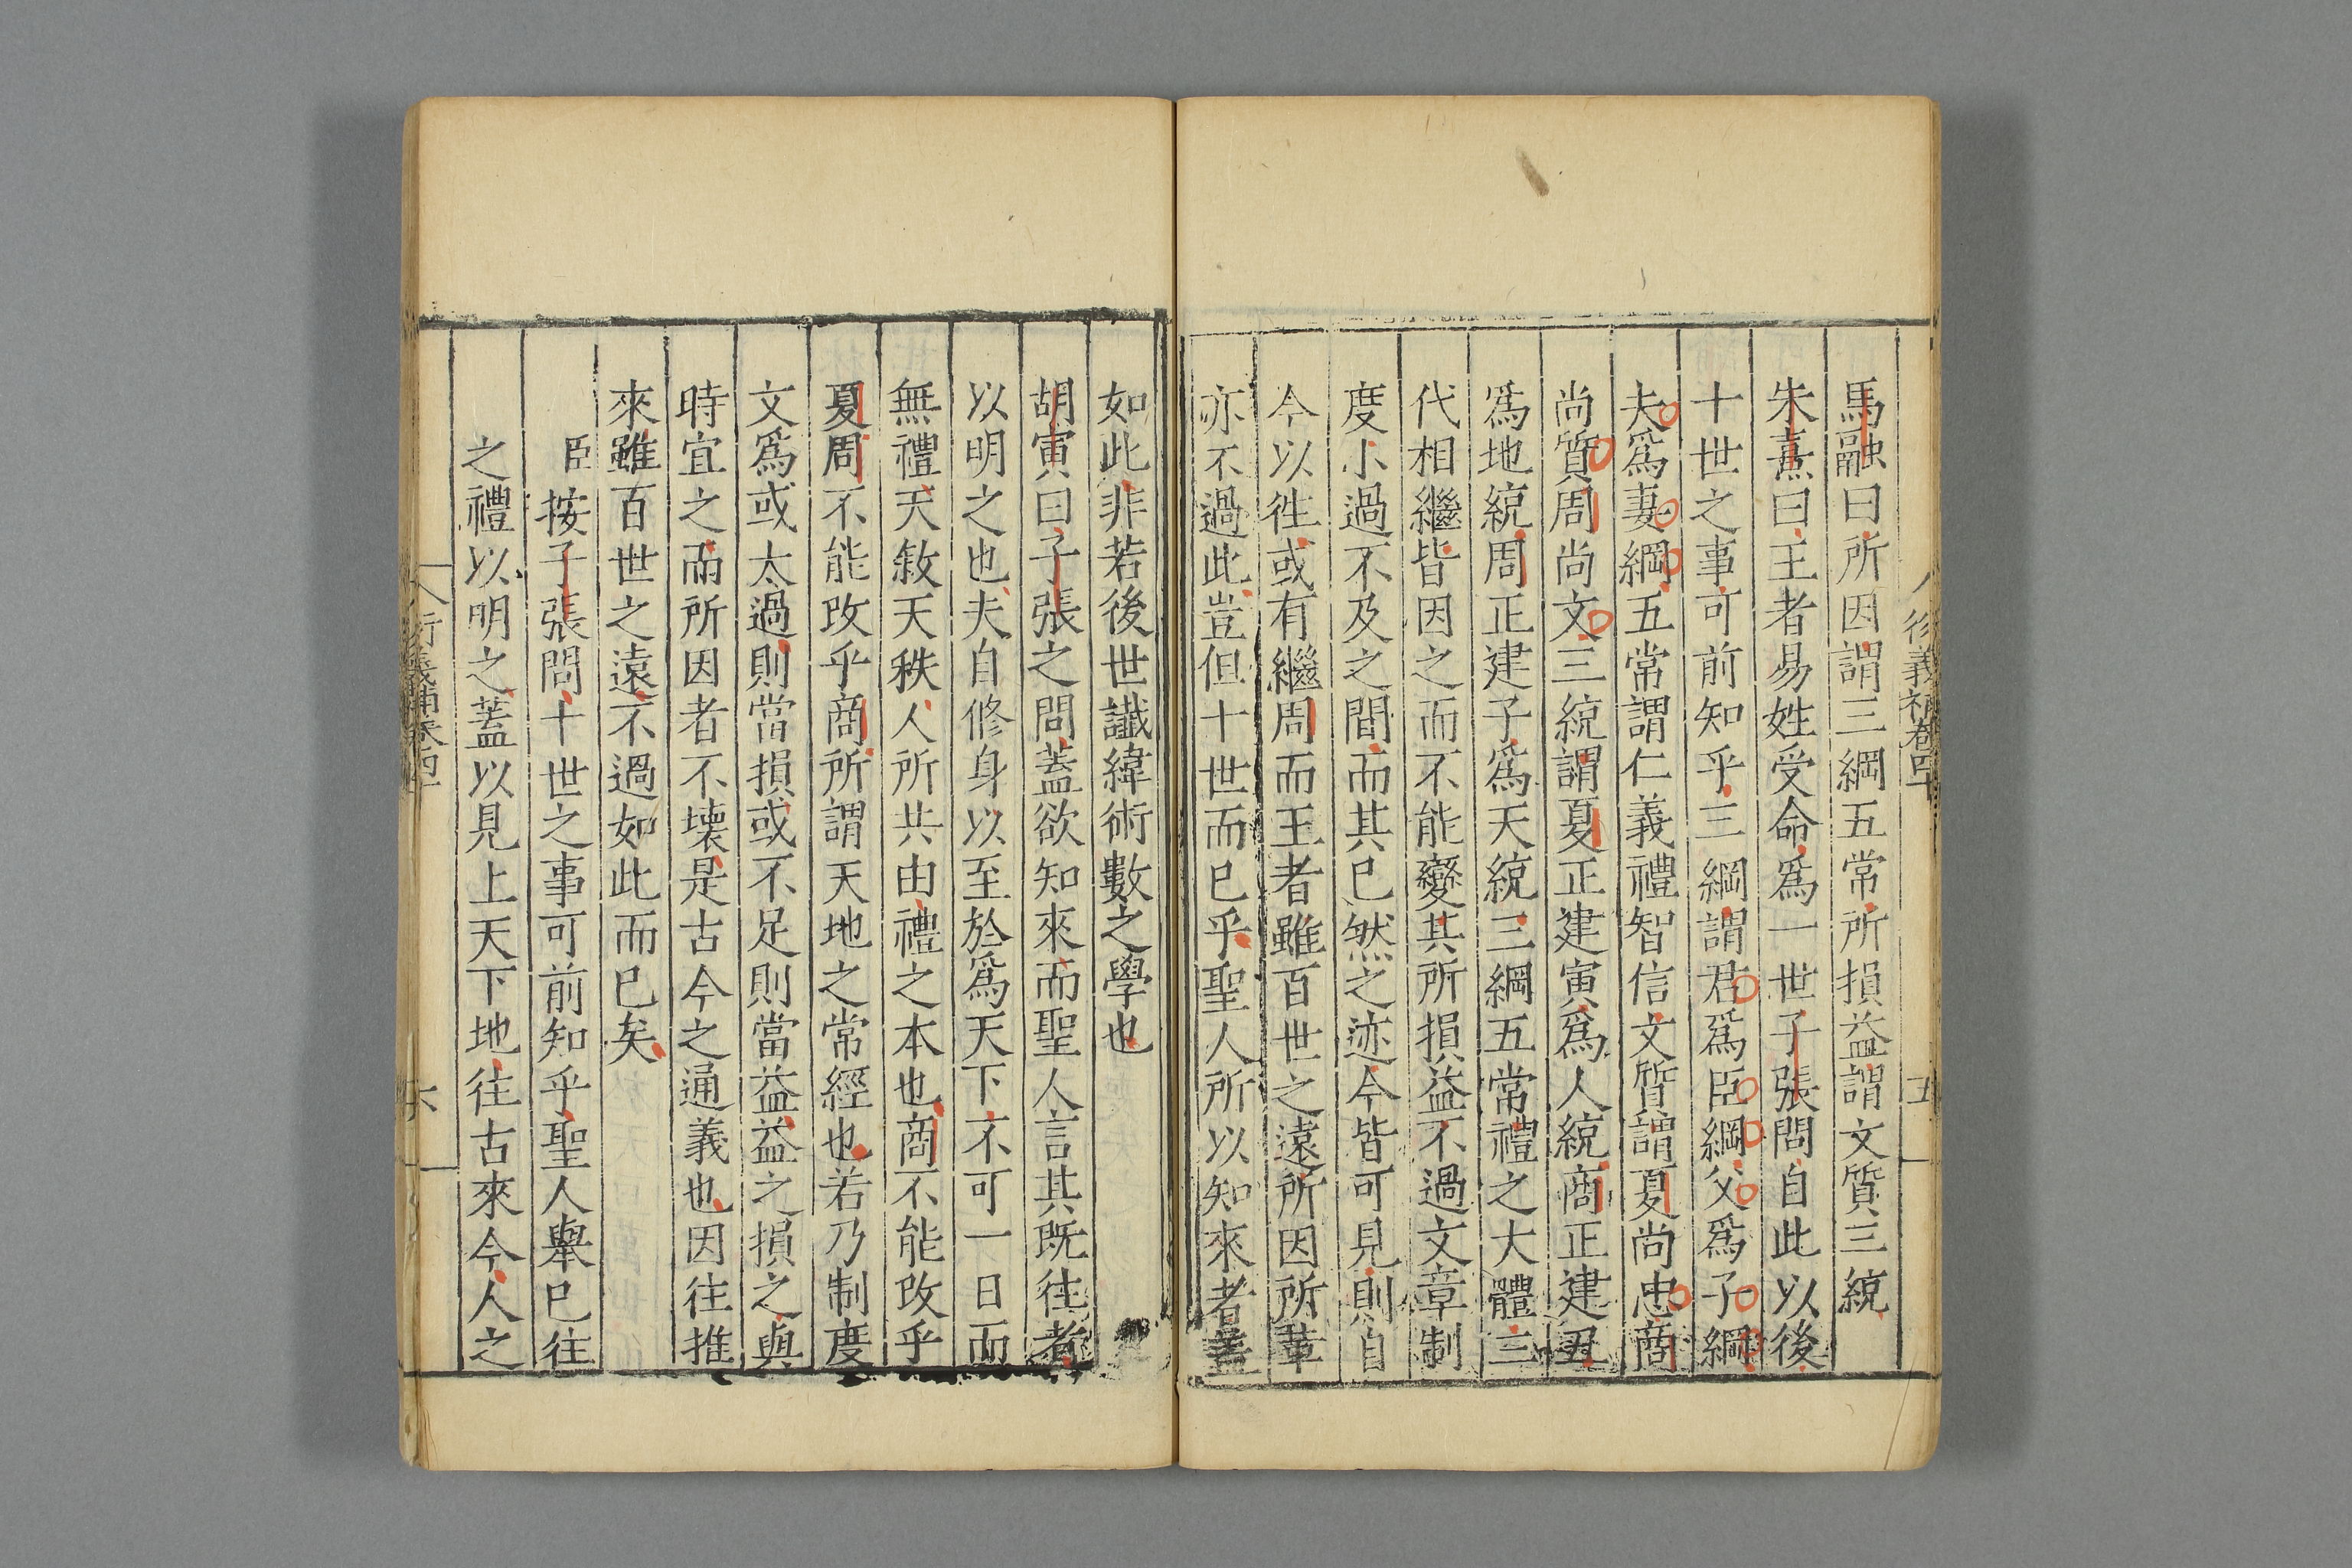 馬融曰所因謂三綱五常所損益謂文質三統
朱熹曰王者易姓受命爲一世子張問自此以後
十世之事可前知乎三綱謂君爲臣綱父爲子綱
夫爲妻綱五常謂仁義禮智信文質謂夏尚忠商
尚質周尚文三統謂夏正建寅爲人統商正建丑
爲地統周正建子爲天統三綱五常禮之大體三
代相繼皆因之而不能變其所損益不過文章制
度小過不及之間而其已然之迹今皆可見則自
今以徃或有繼周而王者雖百世之遠所因所革
亦不過此豈但十世而已乎聖人所以知來者蓋
如此非若後世讖緯術數之學也
胡寅曰子張之問蓋欲知來而聖人言其既往者
以明之也夫自修身以至於爲天下不可一日而
無禮天敘天秩人所共由禮之本也商不能改乎
夏周不能改乎商所謂天地之常經也若乃制度
文爲或太過則當損或不足則當益益之損之與
時宜之而所因者不壊是古今之通義也因往推
來雖百世之遠不過如此而已矣
臣按子張問十世之事可前知乎聖人舉已往
之禮以明之蓋以見上天下地往古來今人之